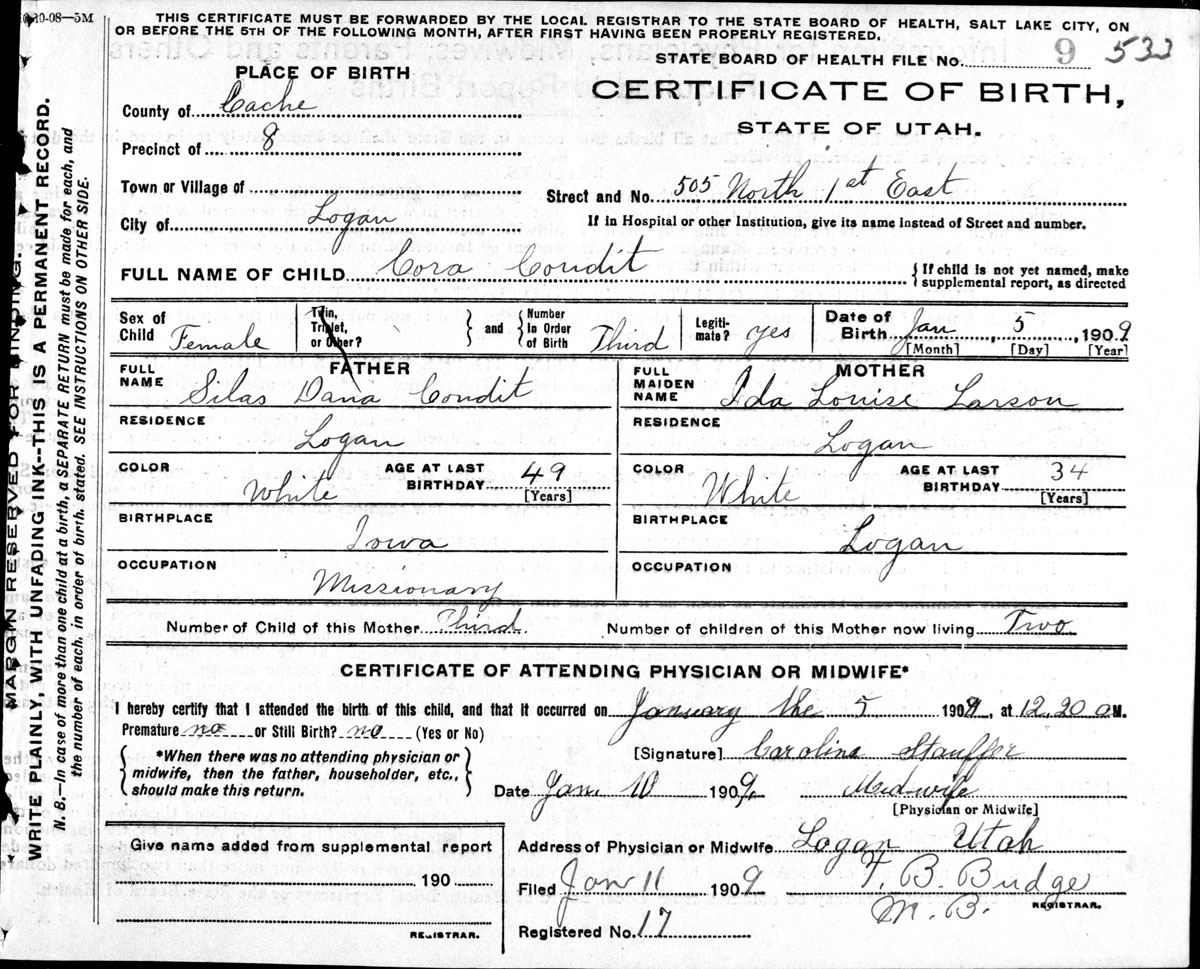 10-10-08—5M
THIS CERTIFICATE MUST BE FORWARDED BY THE LOCAL REGISTRAR TO THE STATE BOARD OF HEALTH, SALT LAKE CITY, ON
OR BEFORE THE 5TH OF THE FOLLOWING MONTH, AFTER FIRST HAVING BEEN PROPERLY REGISTERED.
STATE BOARD OF HEALTH FILE No. 9 533
PLACE OF BIRTH
CERTIFICATE OF BIRTH,
STATE OF UTAH.
County of Cache
Precinct of 8
Town or Village of
Street and No. 505 North 1st East
City of Logan
If in Hospital or other Institution, give its name instead of Street and number.
FULL NAME OF CHILD Cora Condit
{If child is not yet named, make
supplemental report, as directed
Sex of Child Female
Twin, Triplet, or Other?
and
Number in Order of Birth Third
Legitimate? yes
Date of Birth Jan 5, 1909
[Month] [Day] [Year]
FATHER
FULL NAME Silas Dana Condit
RESIDENCE Logan
COLOR White
AGE AT LAST BIRTHDAY 49
[Years]
BIRTHPLACE Iowa
OCCUPATION Missionary
MOTHER
FULL MAIDEN NAME Ida Louise Larson
RESIDENCE Logan
COLOR White
AGE AT LAST BIRTHDAY 34
[Years]
BIRTHPLACE Logan
OCCUPATION
Number of Child of this Mother Third
Number of children of this Mother now living Two
CERTIFICATE OF ATTENDING PHYSICIAN OR MIDWIFE*
I hereby certify that I attended the birth of this child, and that it occurred on January the 5 1909, at 12.20 a M.
Premature no or Still Birth? no (Yes or No)
{*When there was no attending physician or
midwife, then the father, householder, etc.,
should make this return.}
[Signature] Caroline Stauffer
Date Jan. 10 1909. Midwife
[Physician or Midwife]
Give name added from supplemental report
190
REGISTRAR.
Address of Physician or Midwife Logan Utah
Filed Jan 11 1909 T. B. Budge
M. B. REGISTRAR.
Registered No. 17
MARGIN RESERVED FOR BINDING.
WRITE PLAINLY, WITH UNFADING INK--THIS IS A PERMANENT RECORD.
N. B.—In case of more than one child at a birth, a SEPARATE RETURN must be made for each, and
the number of each, in order of birth, stated. SEE INSTRUCTIONS ON OTHER SIDE.